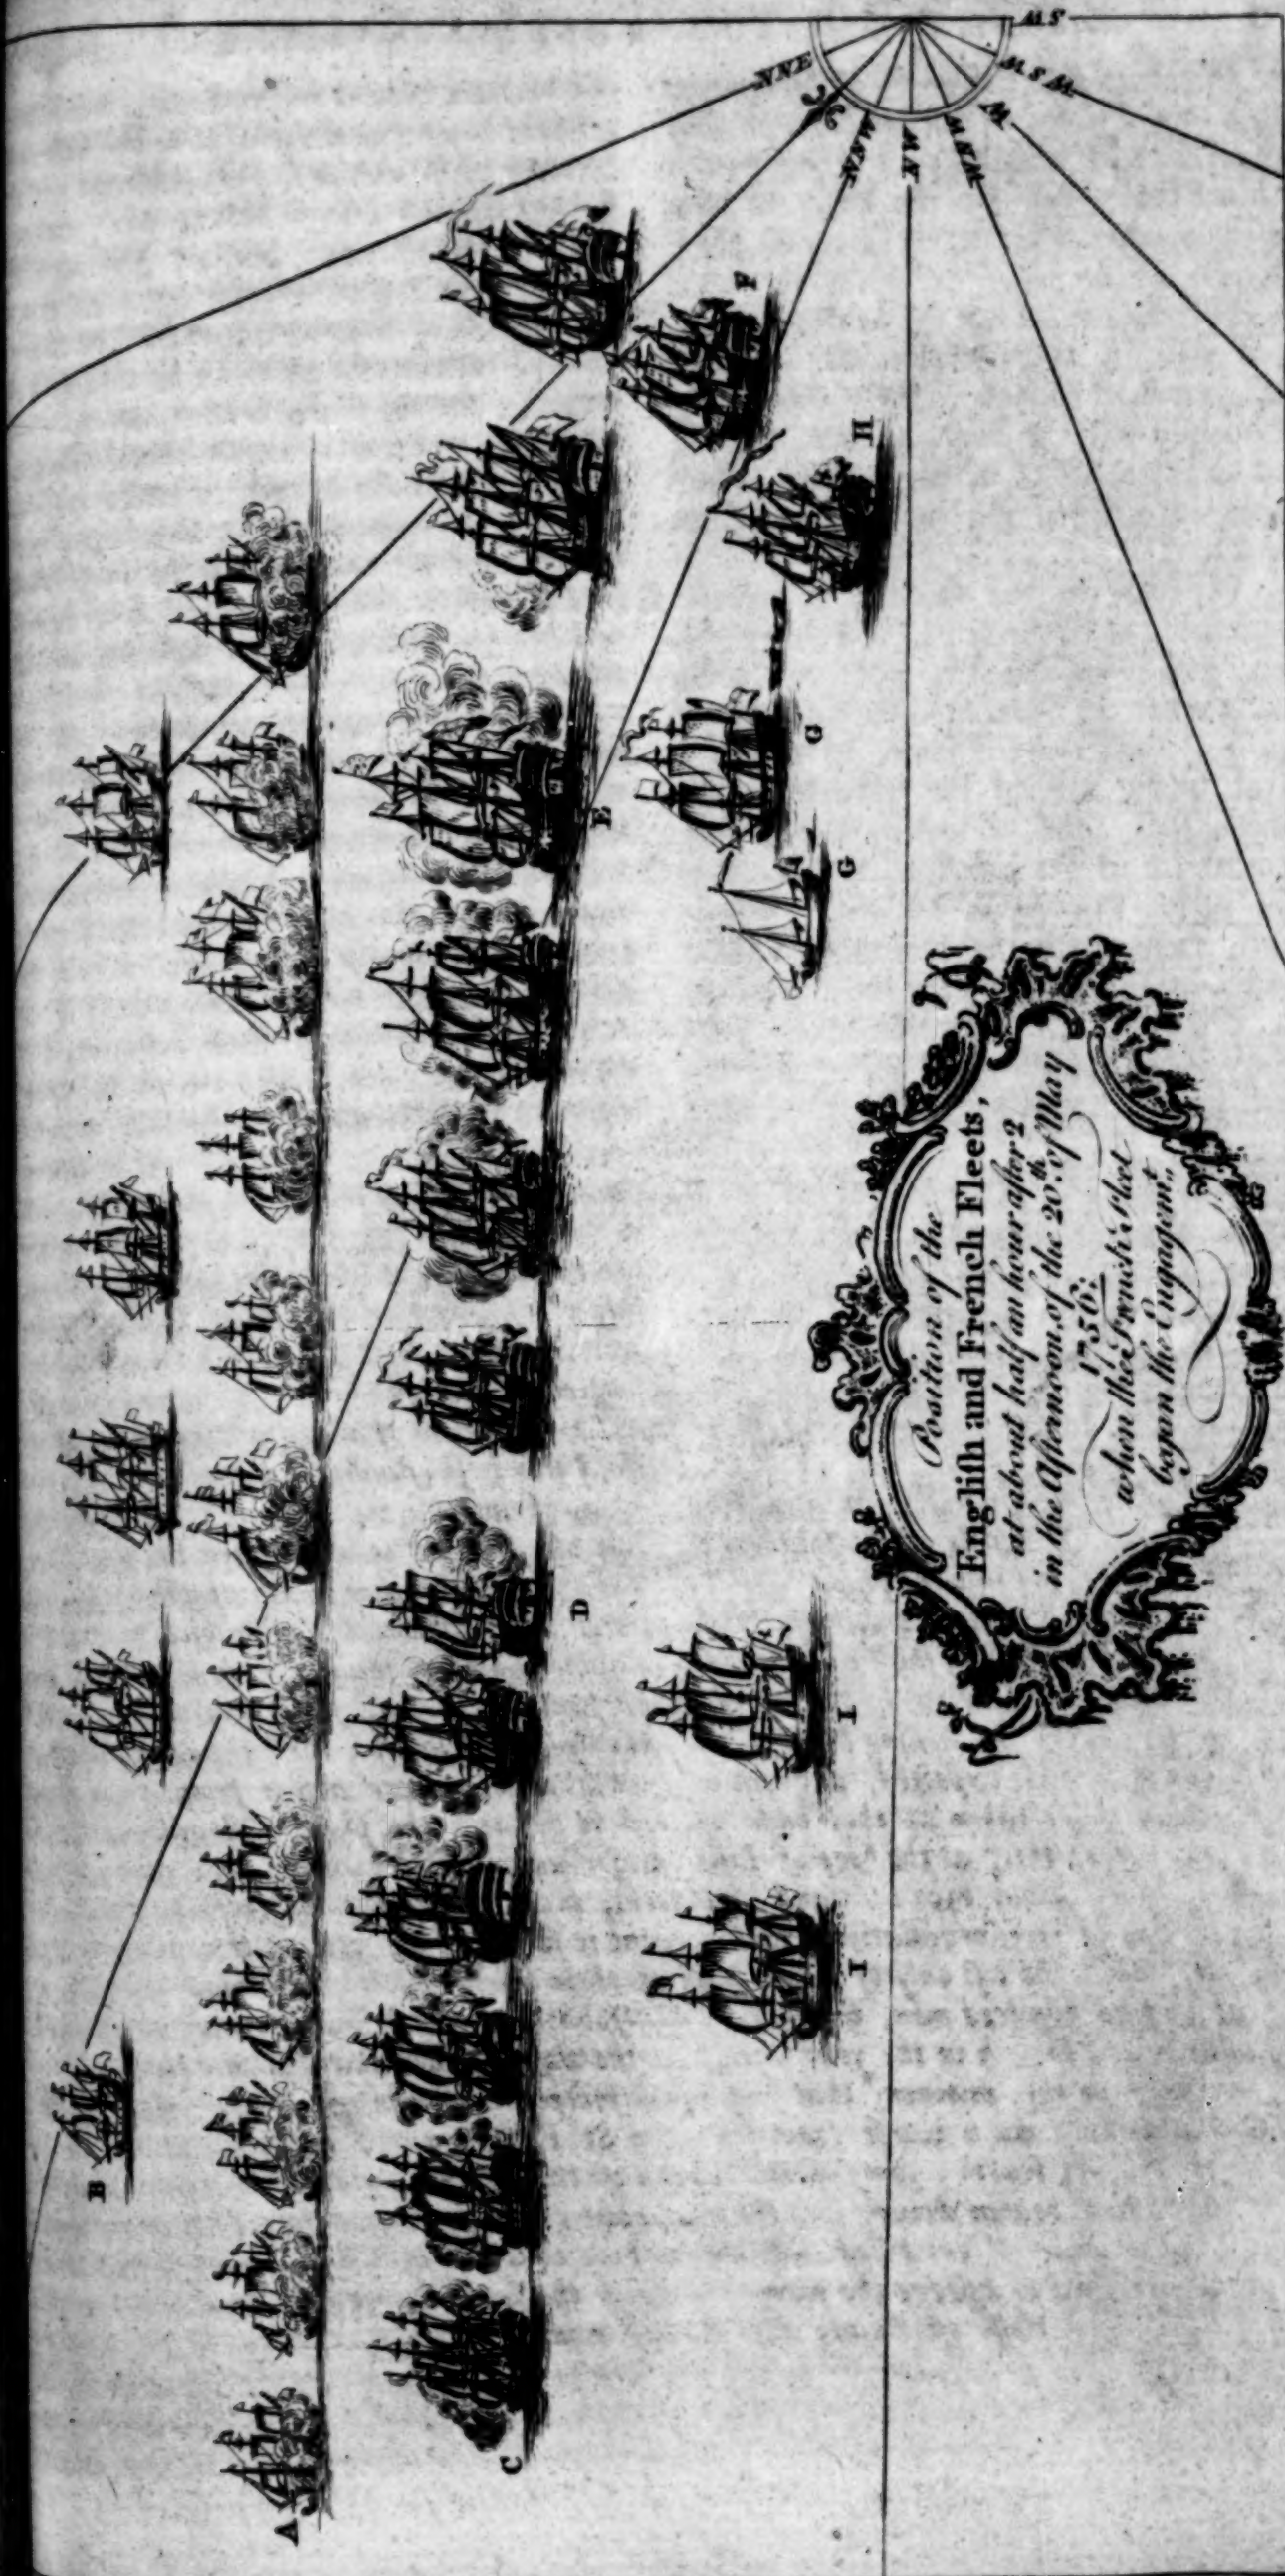 Position of the
Engliſh and French Fleets,
at about half an hour after 2
in the Afternoon, of the 20.th of May
1756.
when the French Fleet
began the Engagem.t
NNE
NNW
NW
WNW
W
WSW
SW
A
B
C
D
E
F
G
G
H
I
I